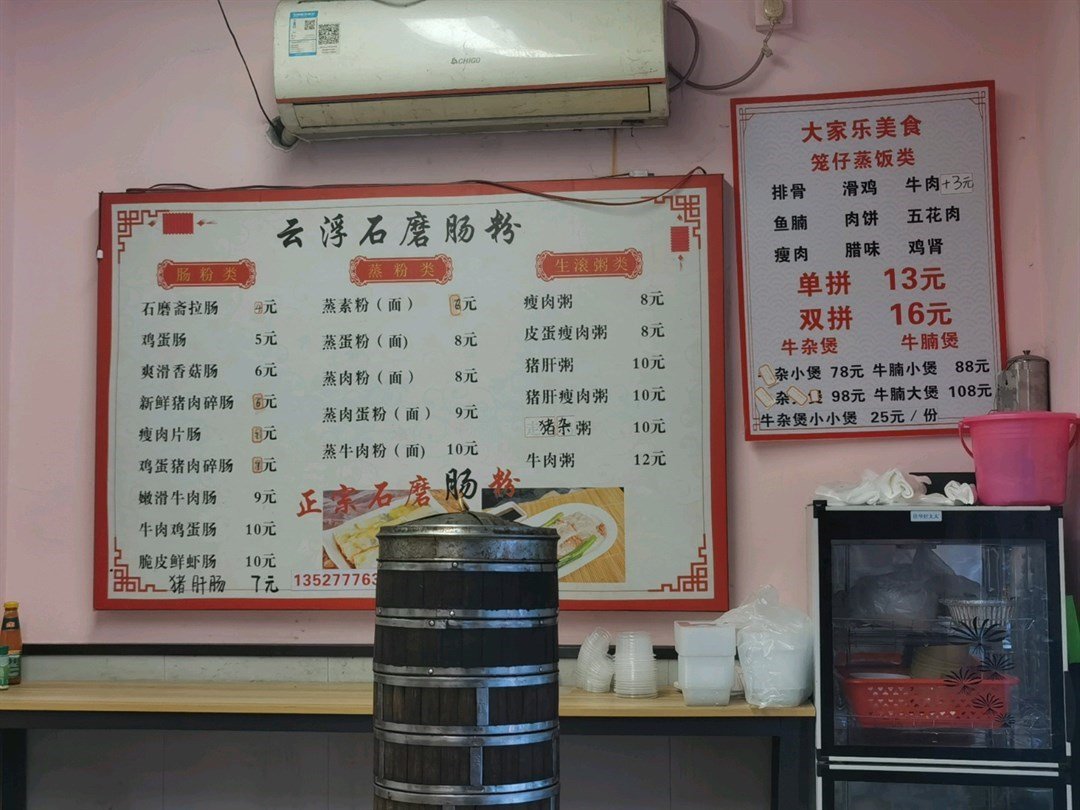 CHIGO
云浮石磨肠粉
肠粉类
石磨斋拉肠 元
鸡蛋肠 5元
爽滑香菇肠 6元
新鲜猪肉碎肠 元
瘦肉片肠 元
鸡蛋猪肉碎肠 元
嫩滑牛肉肠 9元
牛肉鸡蛋肠 10元
脆皮鲜虾肠 10元
猪肝肠 7元
蒸粉类
蒸素粉（面） 6元
蒸蛋粉（面） 8元
蒸肉粉（面） 8元
蒸肉蛋粉（面） 9元
蒸牛肉粉（面） 10元
生滚粥类
瘦肉粥 8元
皮蛋瘦肉粥 8元
猪肝粥 10元
猪肝瘦肉粥 10元
猪杂粥 10元
牛肉粥 12元
正宗石磨肠粉
13527776
大家乐美食
笼仔蒸饭类
排骨 滑鸡 牛肉+3元
鱼腩 肉饼 五花肉
瘦肉 腊味 鸡肾
单拼 13元
双拼 16元
牛杂煲 牛腩煲
杂小煲 78元 牛腩小煲 88元
杂 煲 98元 牛腩大煲 108元
牛杂煲小小煲 25元 / 份